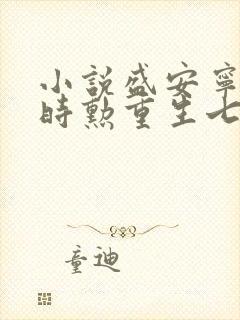 小説盛安寧
時勲重生七
童迪